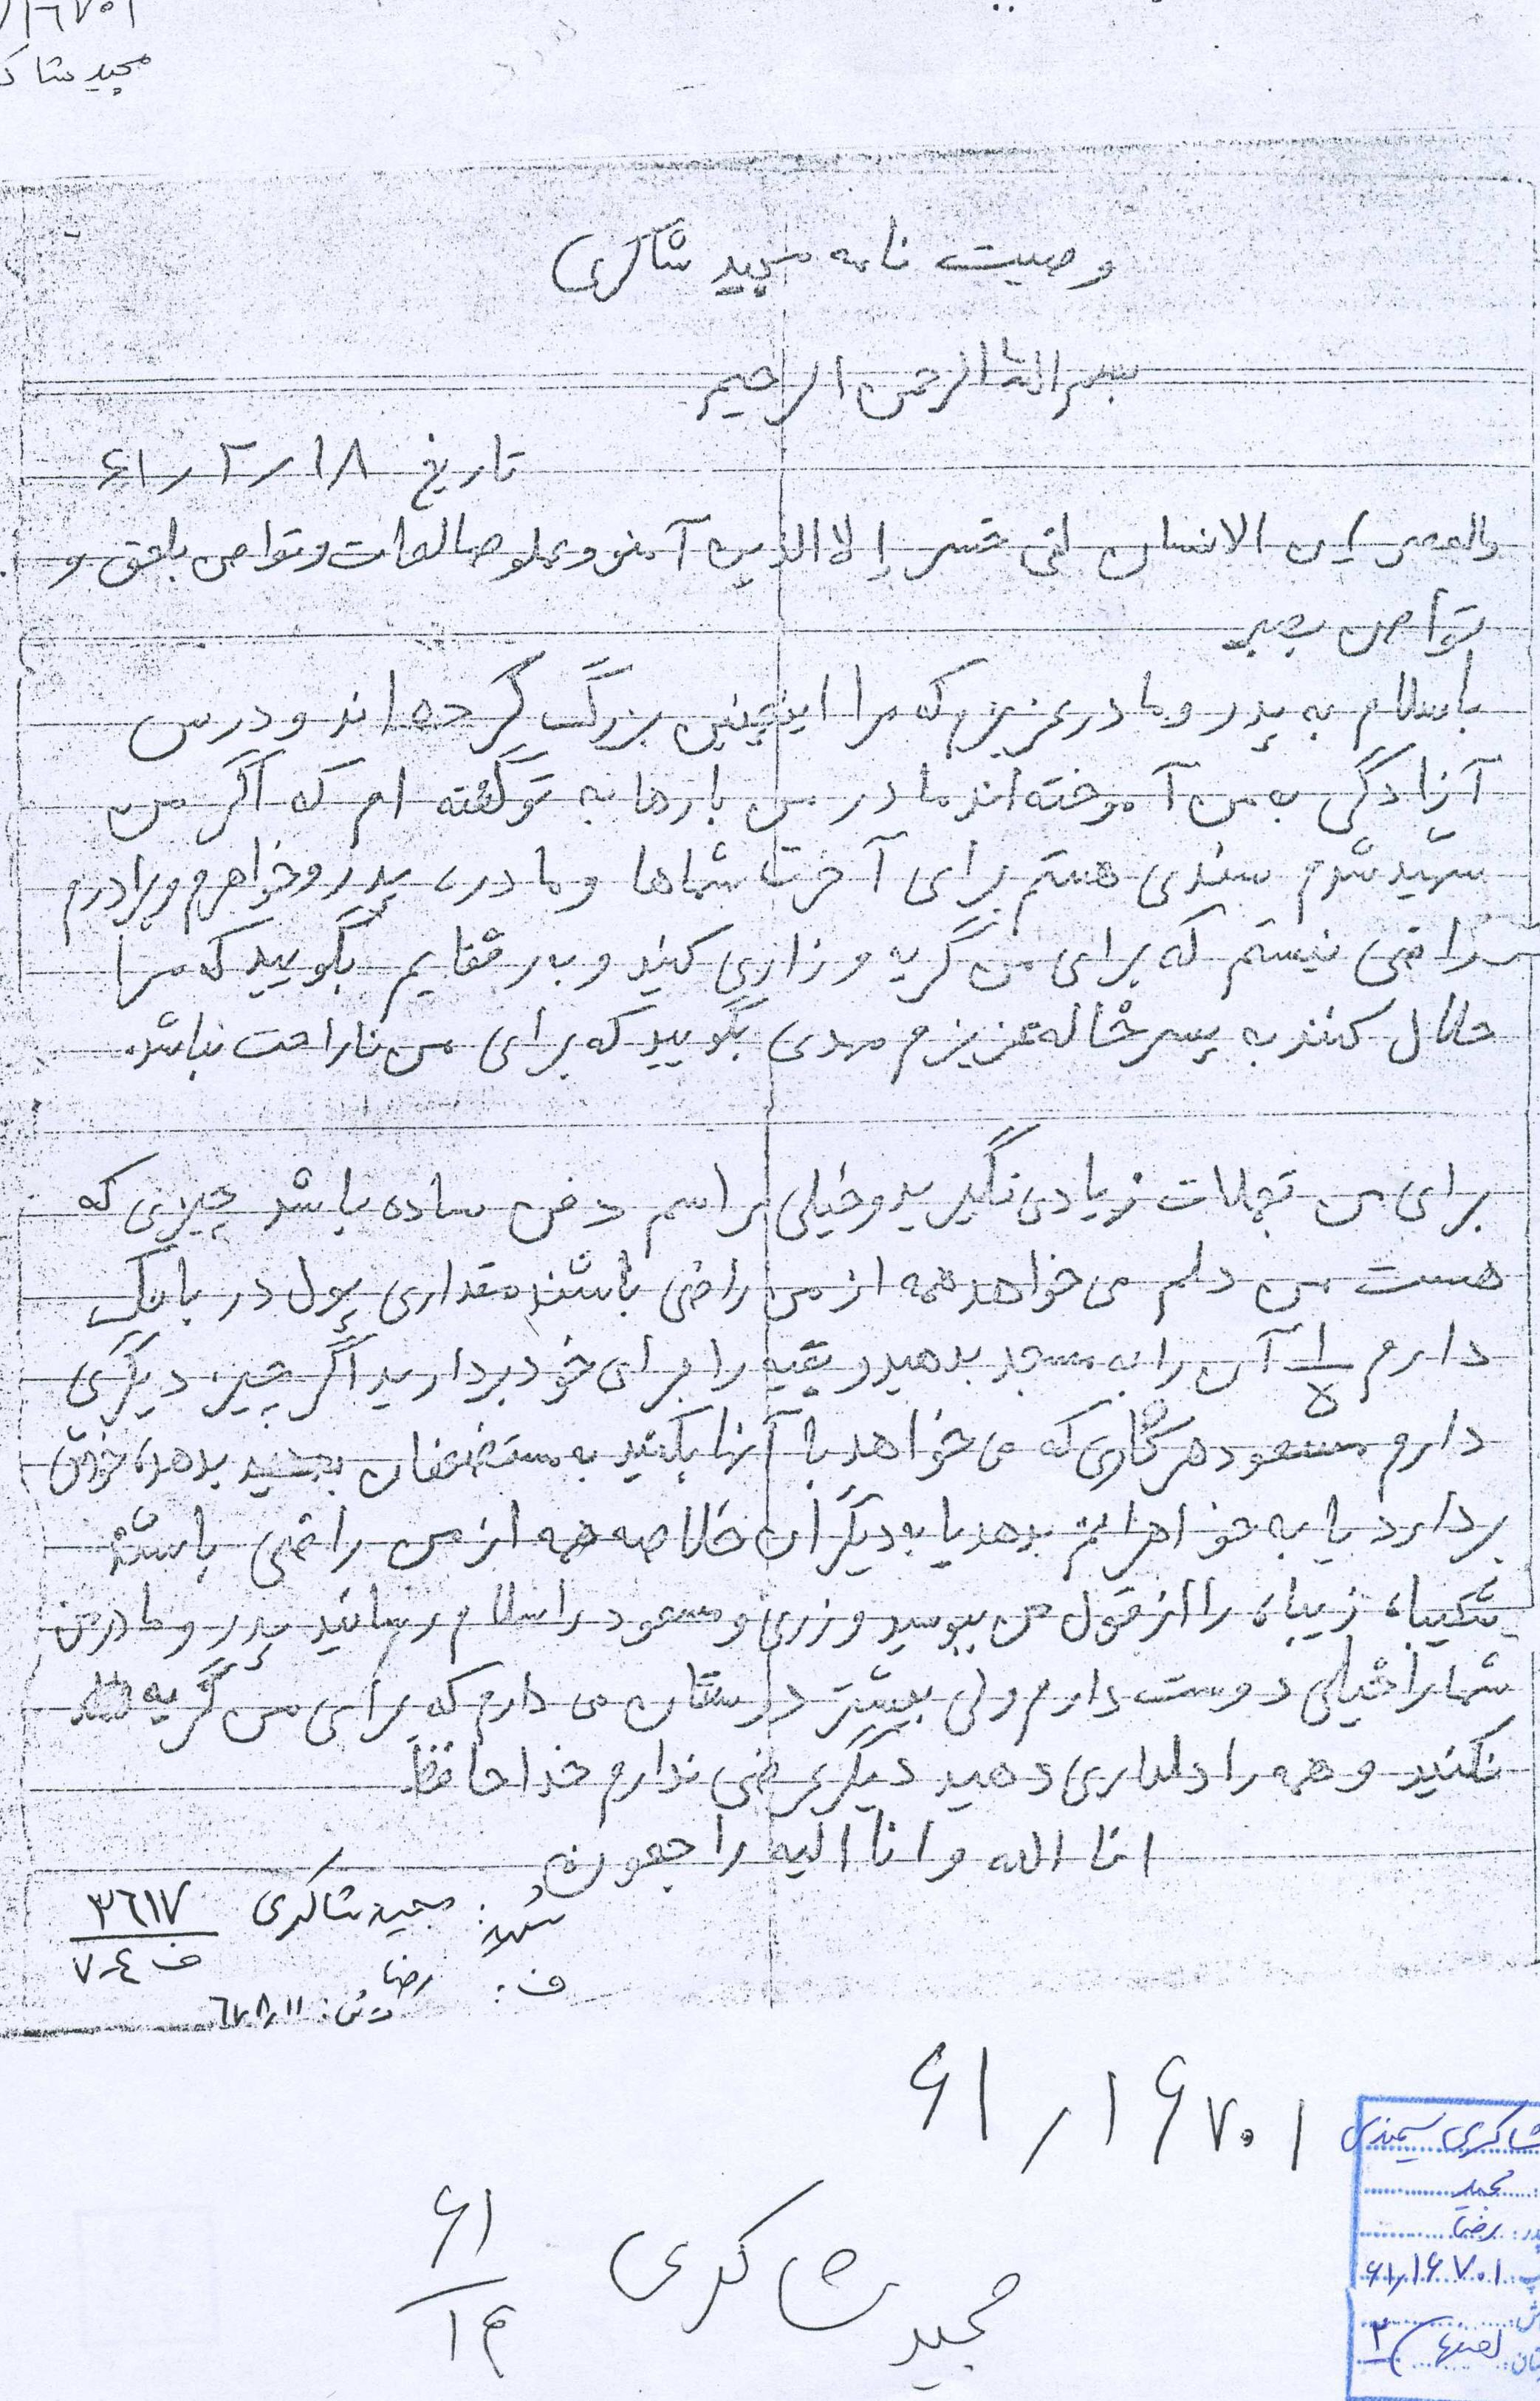 ۱۶۷۰۱
مجید شا
وصیت نامه مجید شاکری
بسم الله الرحمن الرحیم
تاریخ ۶۱٫۲٫۱۸
والعصر ان الانسان لفی خسر إلا الذین آمنو وعملو صالحات وتواصی بلحق و
تواصی بصبر
با سلام به پدر و مادر عزیزم که مرا اینچنین بزرگ کرده اند و درس
آزادگی به من آموخته اند مادر من بارها به تو گفته ام که اگر من
شهید شدم سندی هستم برای آخرت شماها و مادر، پدر و خواهرم و برادرم
راضی نیستم که برای من گریه و زاری کنید و به رفقایم بگویید که مرا
حلال کنند به پسر خاله عزیزم مهدی بگویید که برای من ناراحت نباشد.
برای من تجملات زیادی نگیرید و خیلی مراسم دفن ساده باشد چیزی که
هست من دلم می خواهد همه از من راضی باشند مقداری پول در بانک
دارم ۱/۵ آن را به مسجد بدهید و بقیه را برای خود بردارید اگر چیز دیگری
دارم مسعود هر کاری که می خواهد با آنها بکنید به مستضعفان بدهد، خودش
بردارد یا به خواهرانم بدهد یا به دیگران خلاصه همه از من راضی باشند
شکیبا، زیبا، را از قول من ببوسید و زری و مسعود را سلام رسانید پدر و مادر من
شما را خیلی دوست دارم ولی بیشتر دوستتان می دارم که برای من گریه
نکنید و همه را دلداری دهید دیگر عرضی ندارم خداحافظ
انا الله و انا الیه راجعون
شهید: مجید شاکری ۳۶۱۷
ف: رضا ف ۴-۷
۶۷٫۸٫۱۱
۶۱٫۱۶۷۰۱
مجید شاکری ۶۱
۱۴
شاکری
مجید
رضا
۶۱٫۱۶۷۰۱
۲